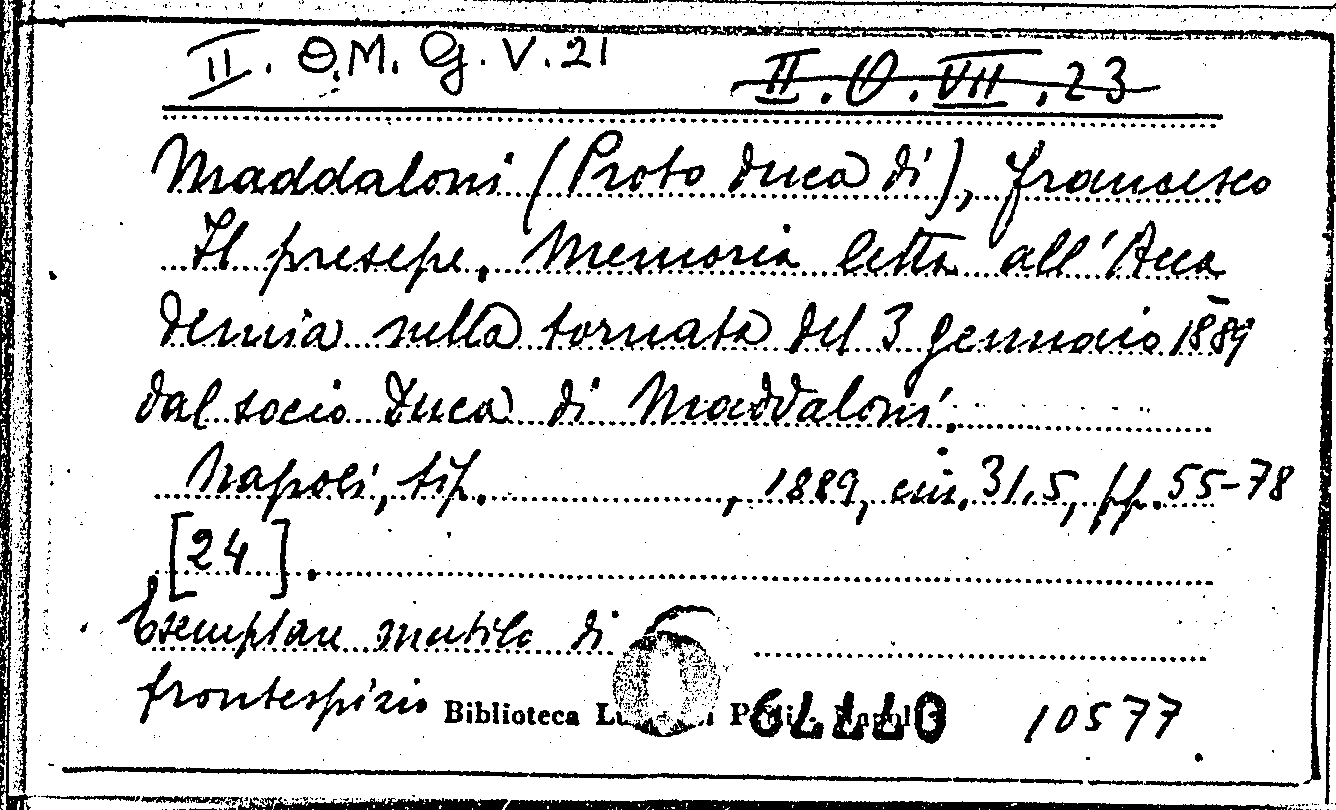 II. O.M. G. V. 21
II. O. VII. 23
Maddaloni (Proto duca di), Francesco
Il presepe. Memoria letta all'Acca
demia nella tornata del 3 gennaio 1889
dal socio Duca di Maddaloni.
Napoli, tip. , 1889, cm. 31.5, pp. 55-78
[24].
Esemplare mutilo di
frontespizio
Biblioteca
077779
10577